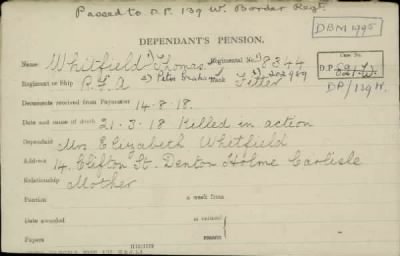 Passed to D.P. 139 W. Border Regt.
DBM 1995
DEPENDANT'S PENSION.
Name: Whitfield 1) Thomas Regimental No. 1) 8344
Case No.
Regiment or Ship R.F.A 2) Peter Graham Rank 2) 202989
D.P.
DP/139W.
Documents received from Paymaster 14-8-18.
Date and cause of death 21-3-18 Killed in action
Dependant Mrs Elizabeth Whitfield
Address 14. Clifton St. Denton Holme Carlisle
Relationship Mother
Pension a week from
Date awarded or refused
Papers reason